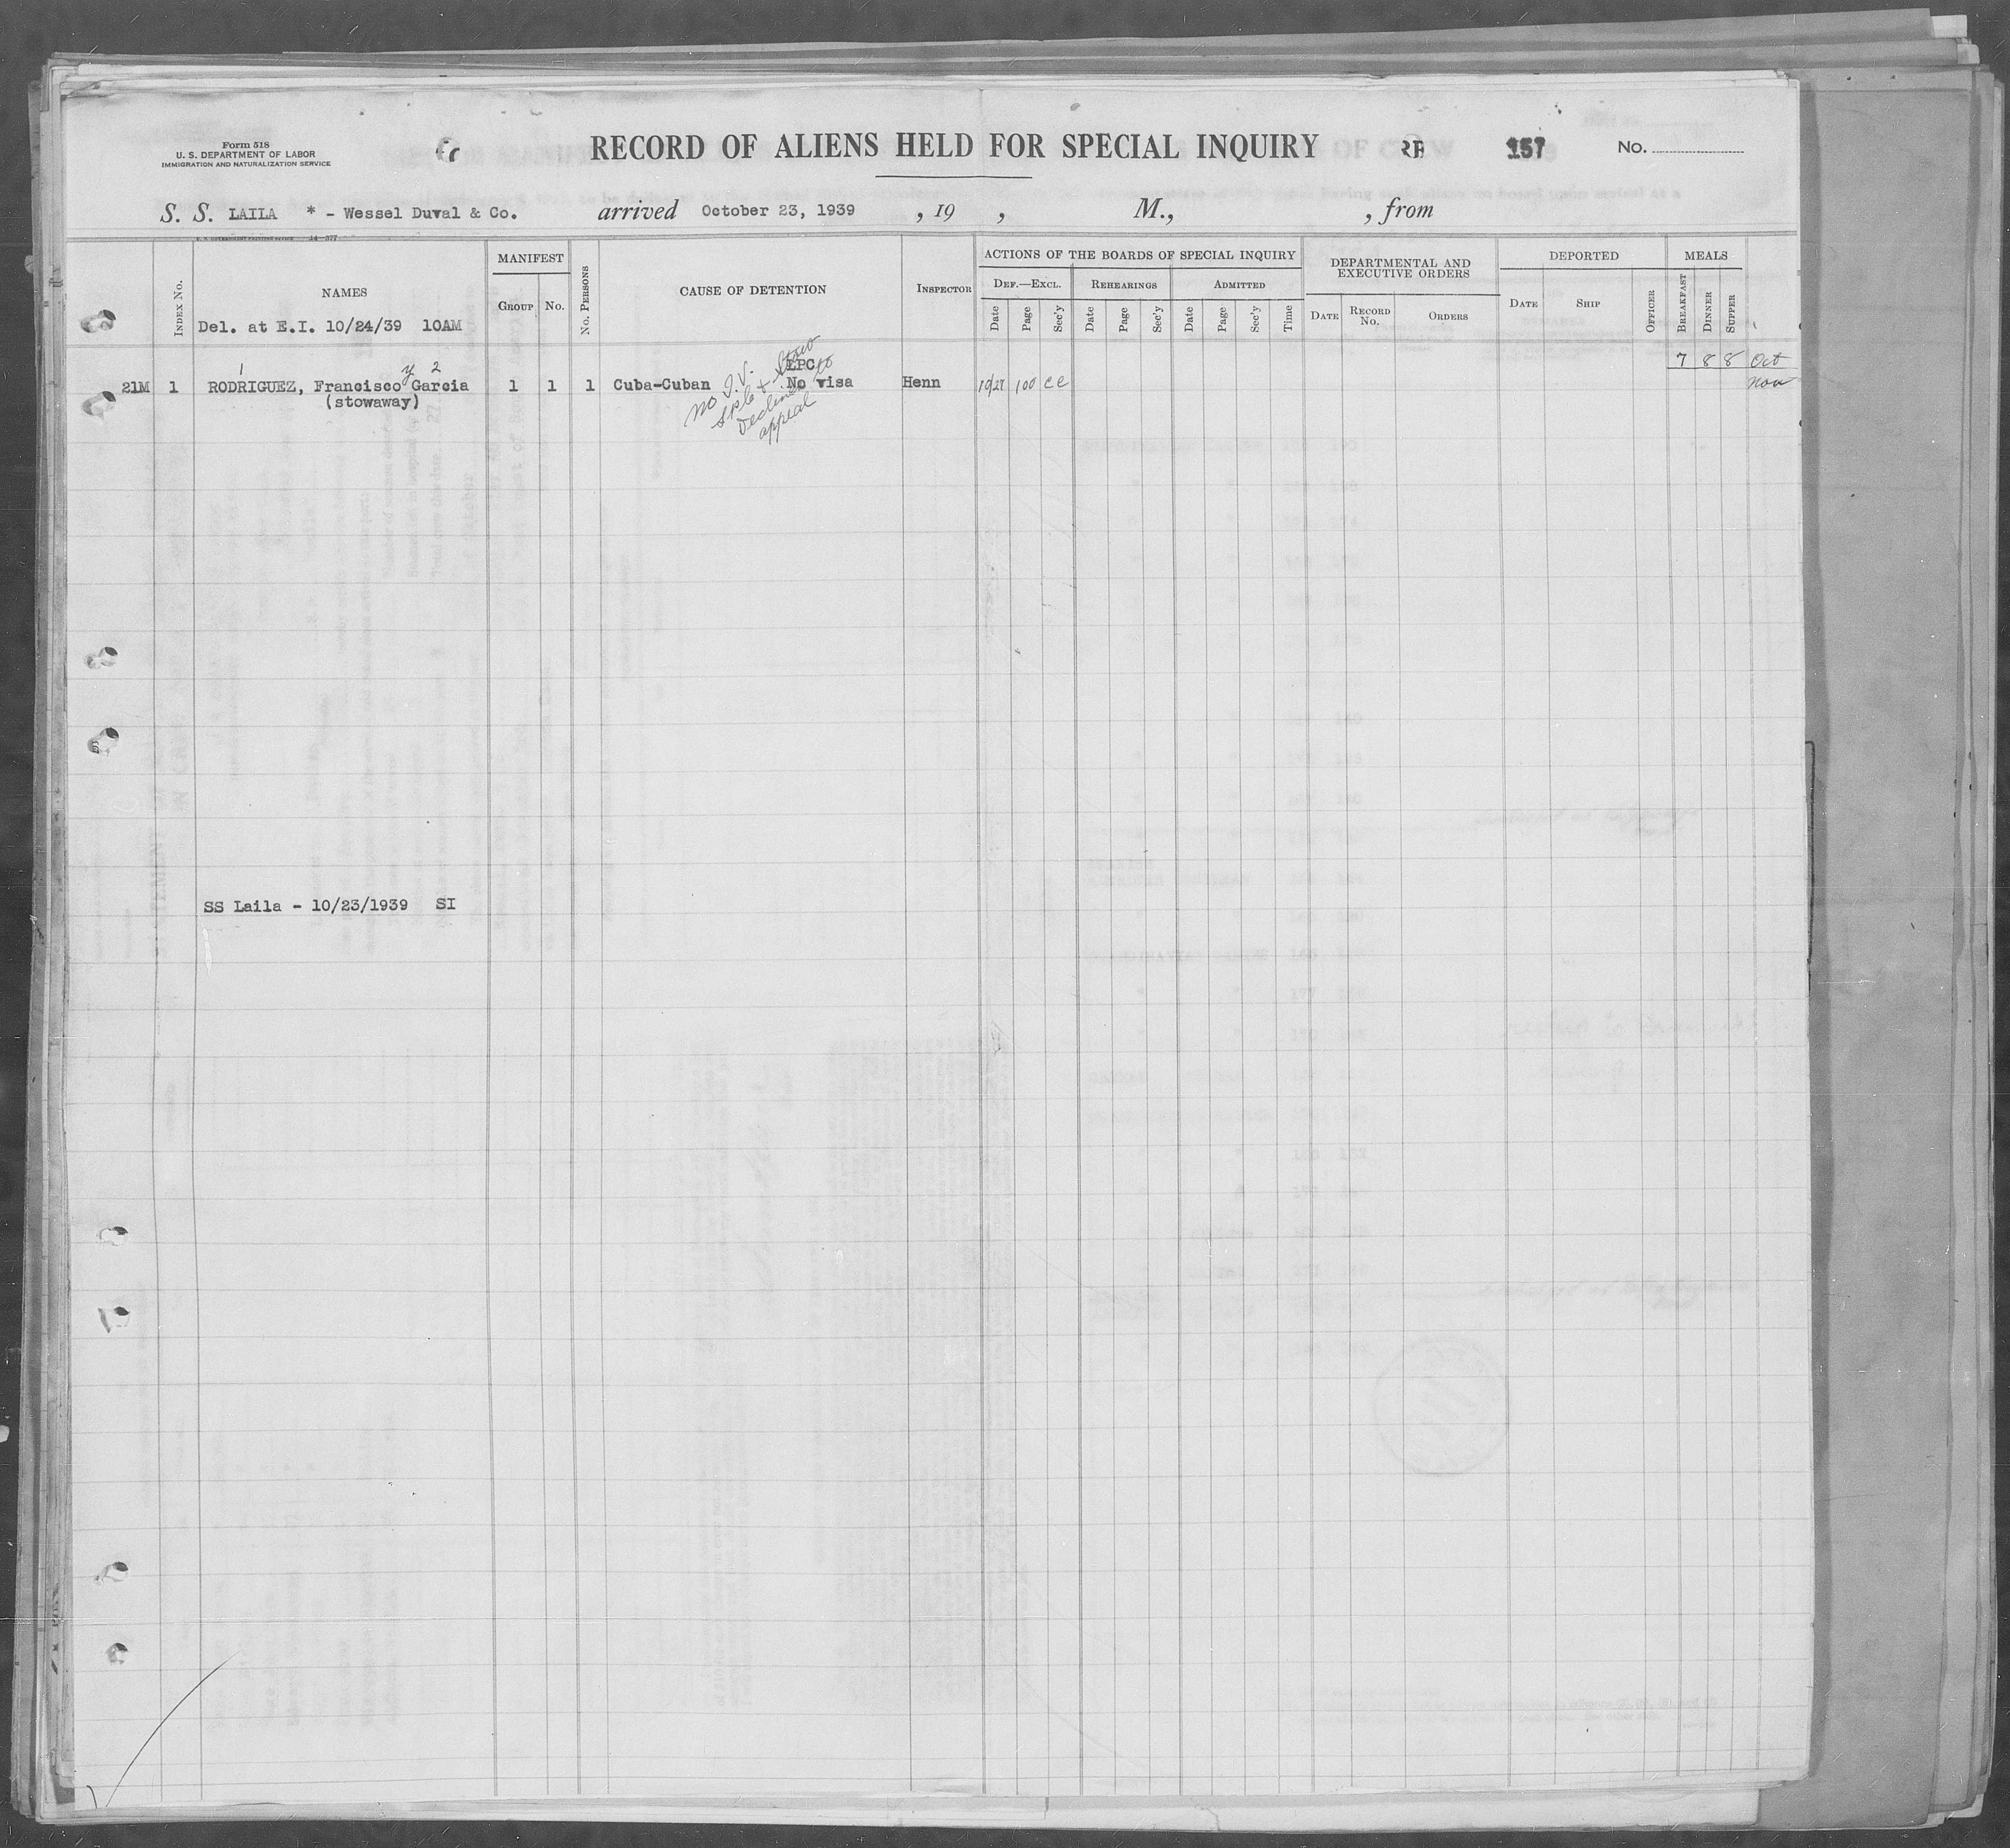 Form 518
U. S. DEPARTMENT OF LABOR
IMMIGRATION AND NATURALIZATION SERVICE
RECORD OF ALIENS HELD FOR SPECIAL INQUIRY
157
No.
S. S. LAILA * - Wessel Duval & Co. arrived October 23, 1939 , 19 , M., , from
14-377
INDEX No.
NAMES
Del. at E.I. 10/24/39 10AM
MANIFEST
GROUP No.
No. PERSONS
CAUSE OF DETENTION
INSPECTOR
ACTIONS OF THE BOARDS OF SPECIAL INQUIRY
DEF.—EXCL. REHEARINGS ADMITTED
Date Page Sec'y Date Page Sec'y Date Page Sec'y Time
DEPARTMENTAL AND EXECUTIVE ORDERS
DATE RECORD No. ORDERS
DEPORTED
DATE SHIP OFFICER
MEALS
BREAKFAST DINNER SUPPER
1 y 2
LPC
7 8 8 Oct
21M 1 RODRIGUEZ, Francisco Garcia 1 1 1 Cuba-Cuban No visa Henn 10/27 100 CC Nov
(stowaway)
No I.V.
Splc + Stow
Declined to
appeal
SS Laila - 10/23/1939 SI